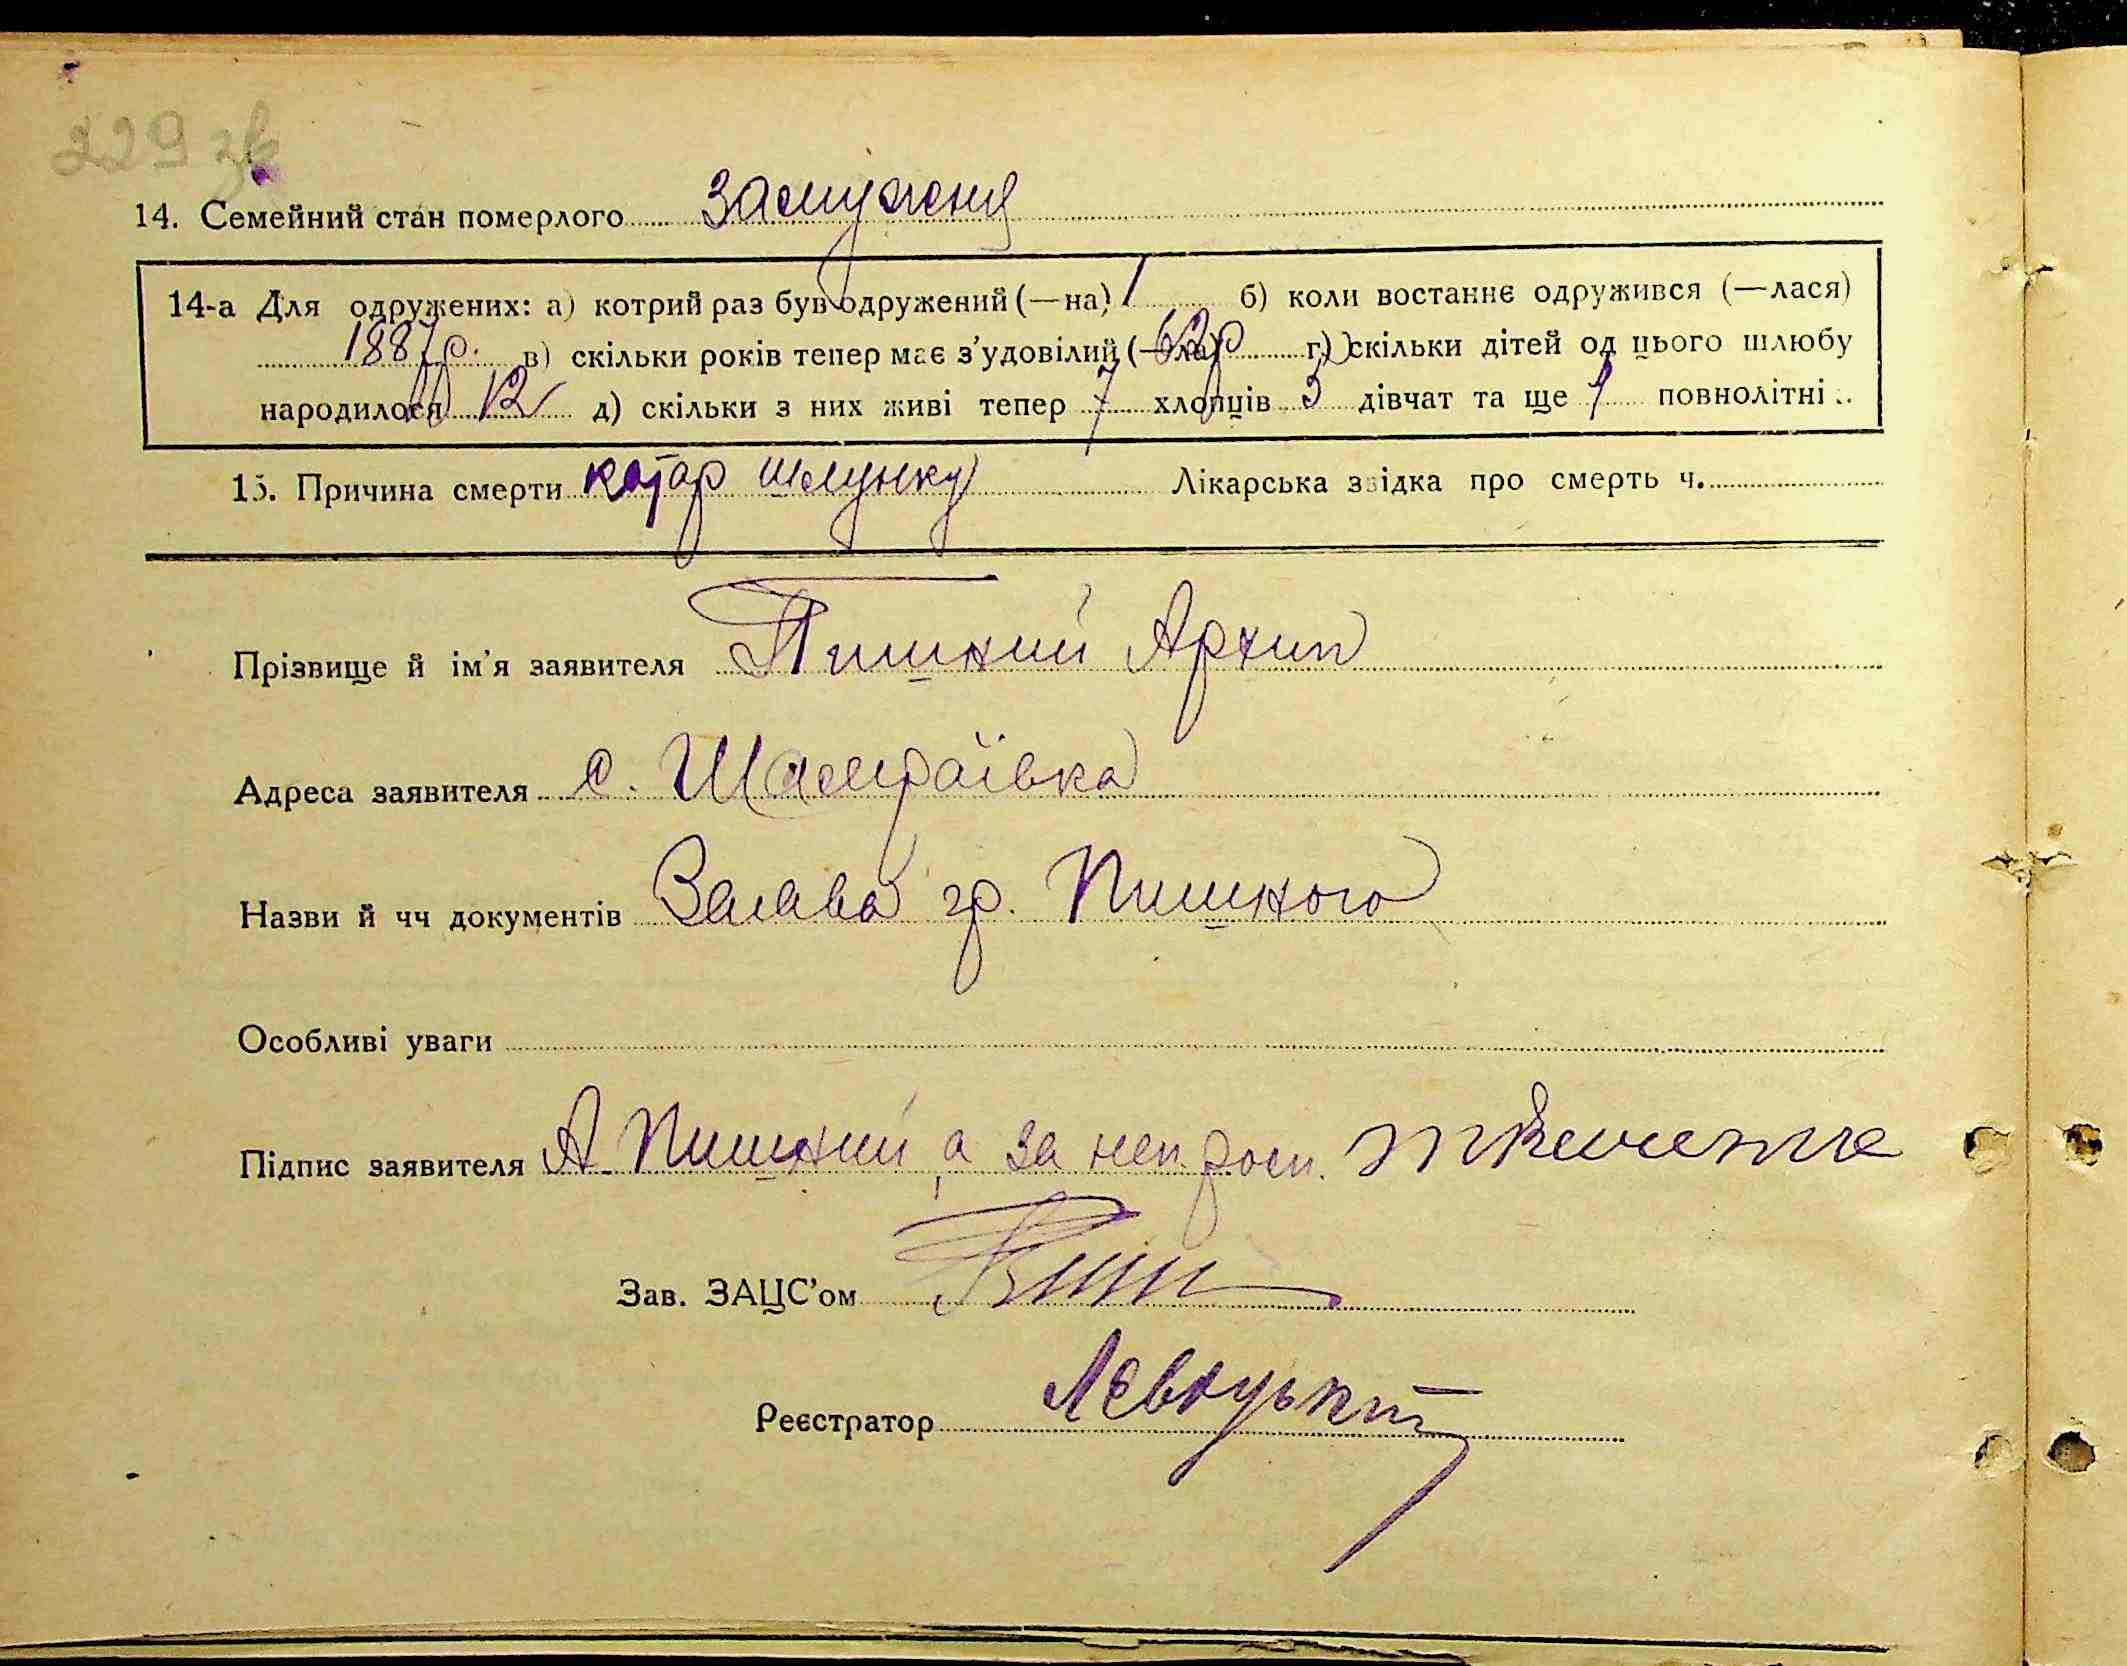 229 зв
14. Семейний стан померлого замужня
14-а Для одружених: а) котрий раз був одружений (—на) 1 б) коли востаннє одружився (—лася)
1887 р. в) скільки років тепер має з'удовілий (—ла) 62 р г) скільки дітей од цього шлюбу
народилося 12 д) скільки з них живі тепер 7 хлопців 5 дівчат та ще повнолітні
15. Причина смерти катар шлунку Лікарська звідка про смерть ч.
Прізвище й ім'я заявителя Пишний Архип
Адреса заявителя с. Шамраївка
Назви й чч документів Заява гр. Пишного
Особливі уваги
Підпис заявителя А. Пишний, а за неп. росп.
Зав. ЗАЦС'ом
Реєстратор Лєвицький